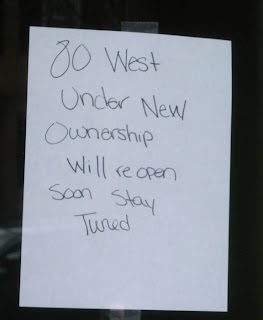 80 West
Under New
Ownership
Will reopen
Soon Stay
Tuned